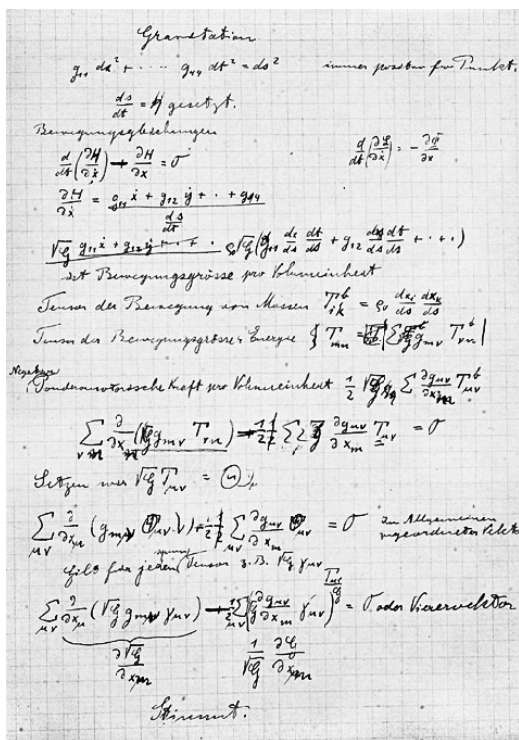 Gravitation
g₁₁ dx² + · · · · g₄₄ dt² = ds² immer positiv für Punkt.
ds/dt = H gesetzt.
Bewegungsgleichungen
d/dt (∂H/∂ẋ) − ∂H/∂x = 0 d/dt (∂L/∂ẋ) = − ∂Φ/∂x
∂H/∂ẋ = (g₁₁ ẋ + g₁₂ ẏ + · · + g₁₄) / (ds/dt)
√G g₁₁ ẋ + g₁₂ ẏ + · · · ρ₀ √G (g₁₁ dx/ds dt/ds + g₁₂ dy/ds dt/ds + · · ·)
ist Bewegungsgrösse pro Volumeinheit
Tensor der Bewegung von Massen T^b_ik = ρ₀ dx_i/ds dx_k/ds
Tensor der Bewegungsgrösse Energie T_mn = √G Σ g_mν T^b_νn
Negative
Ponderomotorische Kraft pro Volumeinheit 1/2 √G Σ ∂g_μν/∂x_m T^b_μν
Σ ∂/∂x_n (√G g_mν T_νn) − 1/2 √G Σ ∂g_μν/∂x_m T_μν = 0
Setzen wir √G T_μν = Θ_μν
Σ_μν ∂/∂x_μ (g_mν Θ_μν) − 1/2 Σ_μν ∂g_μν/∂x_m Θ_μν = 0
gilt für jeden Tensor z. B. √G γ_μν
Σ_μν ∂/∂x_μ (√G g_mν γ_μν) − 1/2 Σ_μν √G ∂g_μν/∂x_m γ_μν = 0 oder Vierervektor
∂√G/∂x_m 1/√G ∂G/∂x_m
Stimmt.